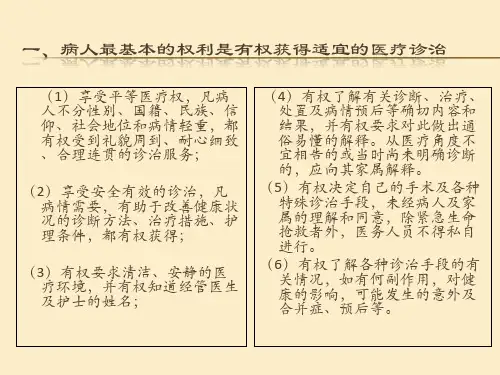 一、病人最基本的权利是有权获得适宜的医疗诊治
（1）享受平等医疗权，凡病
人不分性别、国籍、民族、信
仰、社会地位和病情轻重，都
有权受到礼貌周到、耐心细致
、合理连贯的诊治服务；
（2）享受安全有效的诊治，凡
病情需要，有助于改善健康状
况的诊断方法、治疗措施、护
理条件，都有权获得；
（3）有权要求清洁、安静的医
疗环境，并有权知道经管医生
及护士的姓名；
（4）有权了解有关诊断、治疗、
处置及病情预后等确切内容和
结果，并有权要求对此做出通
俗易懂的解释。从医疗角度不
宜相告的或当时尚未明确诊断
的，应向其家属解释。
（5）有权决定自己的手术及各种
特殊诊治手段，未经病人及家
属的理解和同意，除紧急生命
抢救者外，医务人员不得私自
进行。
（6）有权了解各种诊治手段的有
关情况，如有何副作用，对健
康的影响，可能发生的意外及
合并症、预后等。